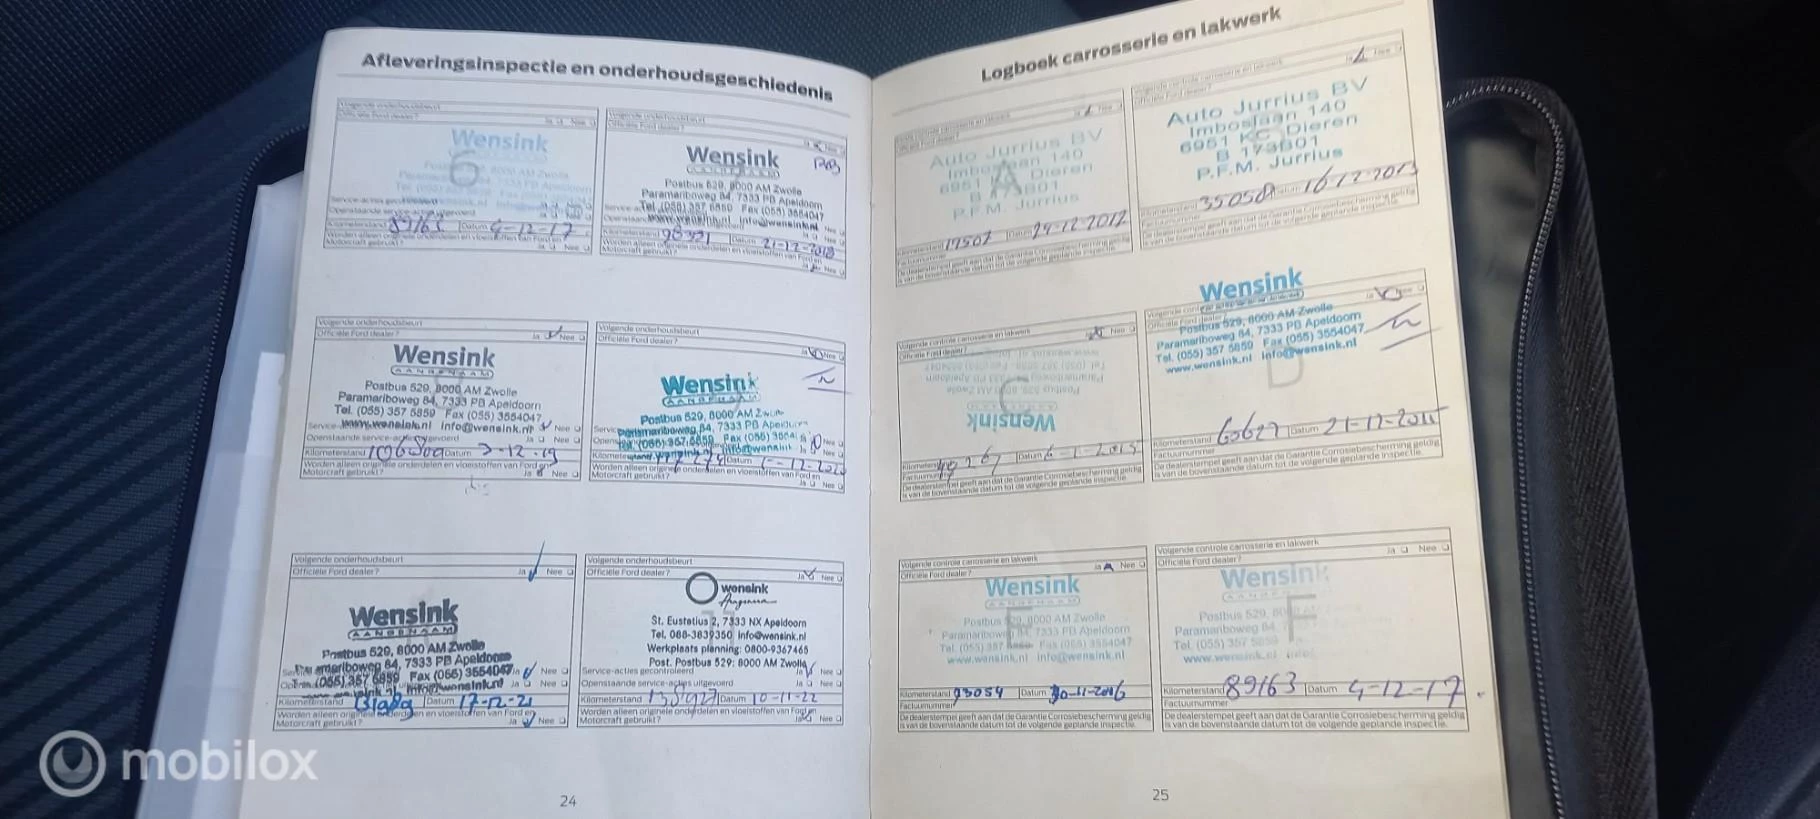 Afleveringsinspectie en onderhoudsgeschiedenis
Volgende onderhoudsbeurt
Officiële Ford dealer? Ja Nee
Wensink
Kilometerstand 89163 Datum 4-12-17
Worden alleen originele onderdelen en vloeistoffen van Ford en
Motorcraft gebruikt? Ja Nee
Volgende onderhoudsbeurt
Wensink
AANGENAAM
Postbus 529, 8000 AM Zwolle
Paramariboweg 84, 7333 PB Apeldoorn
Tel. (055) 357 5859 Fax (055) 3554047
www.wensink.nl info@wensink.nl
Kilometerstand Datum 21-12-2018
Worden alleen originele onderdelen en vloeistoffen van Ford en
Motorcraft gebruikt? Ja Nee
Volgende onderhoudsbeurt
Officiële Ford dealer? Ja Nee
Wensink
AANGENAAM
Postbus 529, 8000 AM Zwolle
Paramariboweg 84, 7333 PB Apeldoorn
Tel. (055) 357 5859 Fax (055) 3554047
www.wensink.nl info@wensink.nl
Openstaande service-acties uitgevoerd Ja Nee
Kilometerstand Datum 3-12-19
Worden alleen originele onderdelen en vloeistoffen van Ford en
Motorcraft gebruikt? Ja Nee
Volgende onderhoudsbeurt
Officiële Ford dealer? Ja Nee
Wensink
AANGENAAM
Postbus 529, 8000 AM Zwolle
Paramariboweg 84, 7333 PB Apeldoorn
Tel. (055) 357 5859 Fax (055)
Datum
Worden alleen originele onderdelen en vloeistoffen van Ford en
Motorcraft gebruikt? Ja Nee
Volgende onderhoudsbeurt
Officiële Ford dealer? Ja Nee
Wensink
AANGENAAM
Postbus 529, 8000 AM Zwolle
Paramariboweg 84, 7333 PB Apeldoorn
(055) 357 5859 Fax (055) 3554047
info@wensink.nl
Kilometerstand Datum 17-12-21
Worden alleen originele onderdelen en vloeistoffen van Ford en
Motorcraft gebruikt? Ja Nee
Volgende onderhoudsbeurt
Officiële Ford dealer? Ja Nee
wensink
St. Eustatius 2, 7333 NX Apeldoorn
Tel. 088-3839350 info@wensink.nl
Werkplaats planning: 0800-9367465
Post. Postbus 529; 8000 AM Zwolle
Service-acties gecontroleerd Ja Nee
Openstaande service-acties uitgevoerd Ja Nee
Kilometerstand 138927 Datum 10-11-22
Worden alleen originele onderdelen en vloeistoffen van Ford en
Motorcraft gebruikt? Ja Nee
24
Logboek carrosserie en lakwerk
Auto Jurrius BV
Imboslaan 140
Dieren
P.F.M. Jurrius
Kilometerstand 17507 Datum 24-12-2012
Factuurnummer
De dealerstempel geeft aan dat de Garantie Corrosiebescherming geldig
is van de bovenstaande datum tot de volgende geplande inspectie.
Auto Jurrius BV
Imboslaan 140
6951 KC Dieren
B 173801
P.F.M. Jurrius
Kilometerstand Datum 16-12-2013
Factuurnummer
De dealerstempel geeft aan dat de Garantie Corrosiebescherming geldig
is van de bovenstaande datum tot de volgende geplande inspectie.
Volgende controle carrosserie en lakwerk
Officiële Ford dealer? Ja Nee
Paramariboweg 84, 7333 PB Apeldoorn
Postbus 529, 8000 AM Zwolle
Wensink
Kilometerstand Datum 6-1-2015
De dealerstempel geeft aan dat de Garantie Corrosiebescherming geldig
is van de bovenstaande datum tot de volgende geplande inspectie.
Wensink
Postbus 529, 8000 AM Zwolle
Paramariboweg 84, 7333 PB Apeldoorn
Tel. (055) 357 5859 Fax (055) 3554047
www.wensink.nl info@wensink.nl
D
Kilometerstand 60627 Datum 21-12-2015
Factuurnummer
De dealerstempel geeft aan dat de Garantie Corrosiebescherming geldig
is van de bovenstaande datum tot de volgende geplande inspectie.
Volgende controle carrosserie en lakwerk
Officiële Ford dealer? Ja Nee
Wensink
AANGENAAM
Postbus 529, 8000 AM Zwolle
Paramariboweg 84, 7333 PB Apeldoorn
Tel. (055) 357 5859 Fax (055) 3554047
www.wensink.nl info@wensink.nl
Kilometerstand 73054 Datum 30-11-2016
Factuurnummer
De dealerstempel geeft aan dat de Garantie Corrosiebescherming geldig
is van de bovenstaande datum tot de volgende geplande inspectie.
Volgende controle carrosserie en lakwerk
Officiële Ford dealer? Ja Nee
Wensink
Postbus 529, 8000 AM Zwolle
Paramariboweg 84
Tel. (055) 357 5859
www.wensink.nl
F
Kilometerstand 89163 Datum 4-12-17
Factuurnummer
De dealerstempel geeft aan dat de Garantie Corrosiebescherming geldig
is van de bovenstaande datum tot de volgende geplande inspectie.
25
mobilox